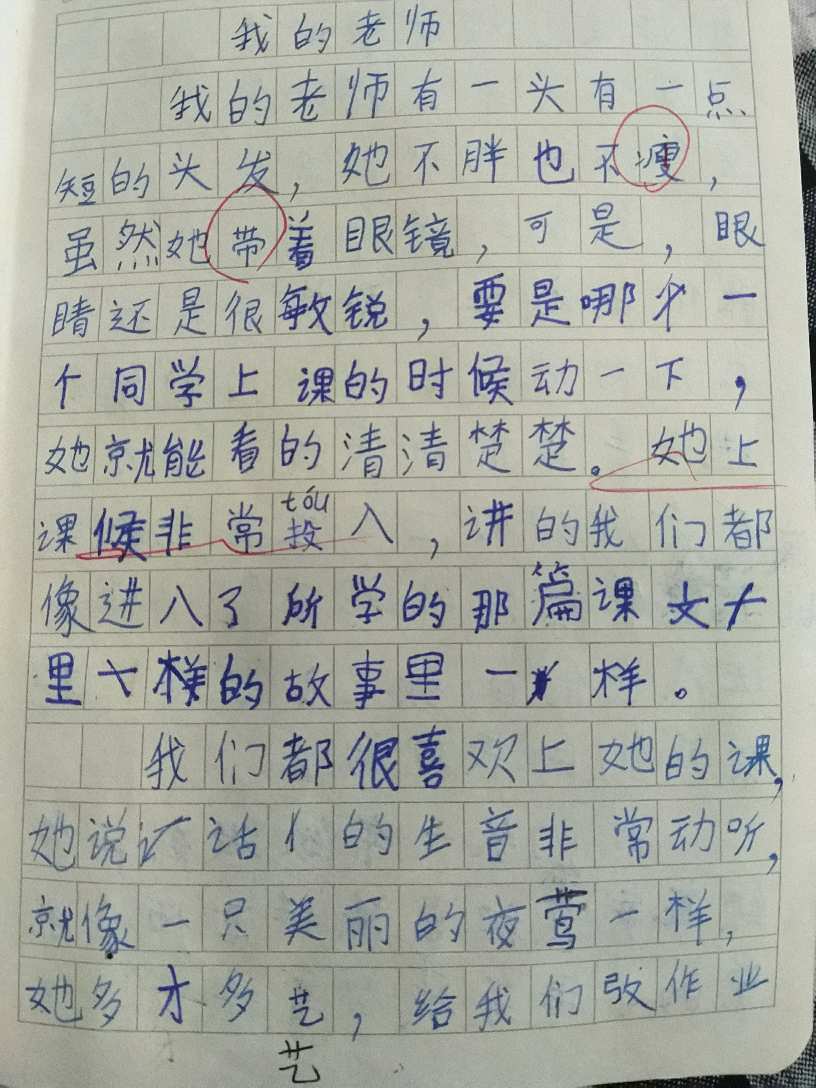 我的老师
我的老师有一头有一点
短的头发，她不胖也不瘦，
虽然她带着眼镜，可是，眼
睛还是很敏锐，要是哪个一
个同学上课的时候动一下，
她就能看的清清楚楚。她上
tóu
课候非常投入，讲的我们都
像进入了所学的那篇课文
里样的故事里一样。
我们都很喜欢上她的课，
她说话的生音非常动听，
就像一只美丽的夜莺一样，
她多才多艺，给我们改作业
艺